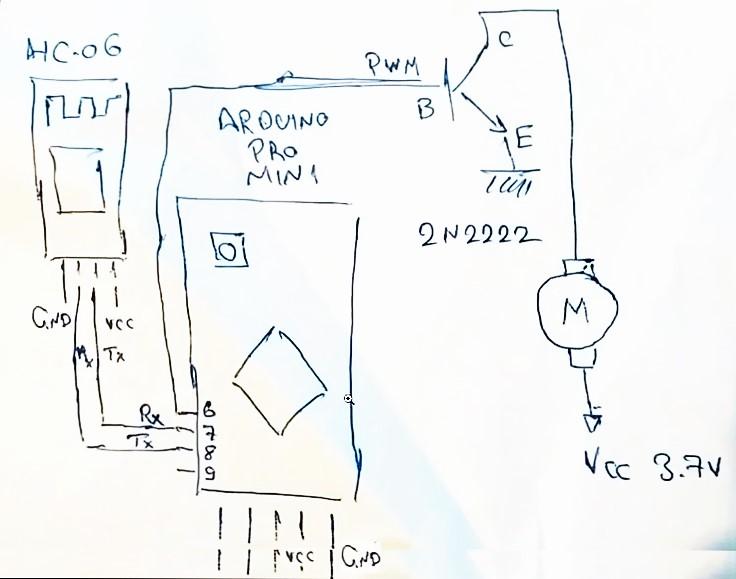 HC-06
PWM
C
B
ARDUINO
PRO
MINI
E
2N2222
GND
VCC
Rx
Tx
M
6
Rx
7
Tx
8
9
VCC 3.7V
VCC
GND